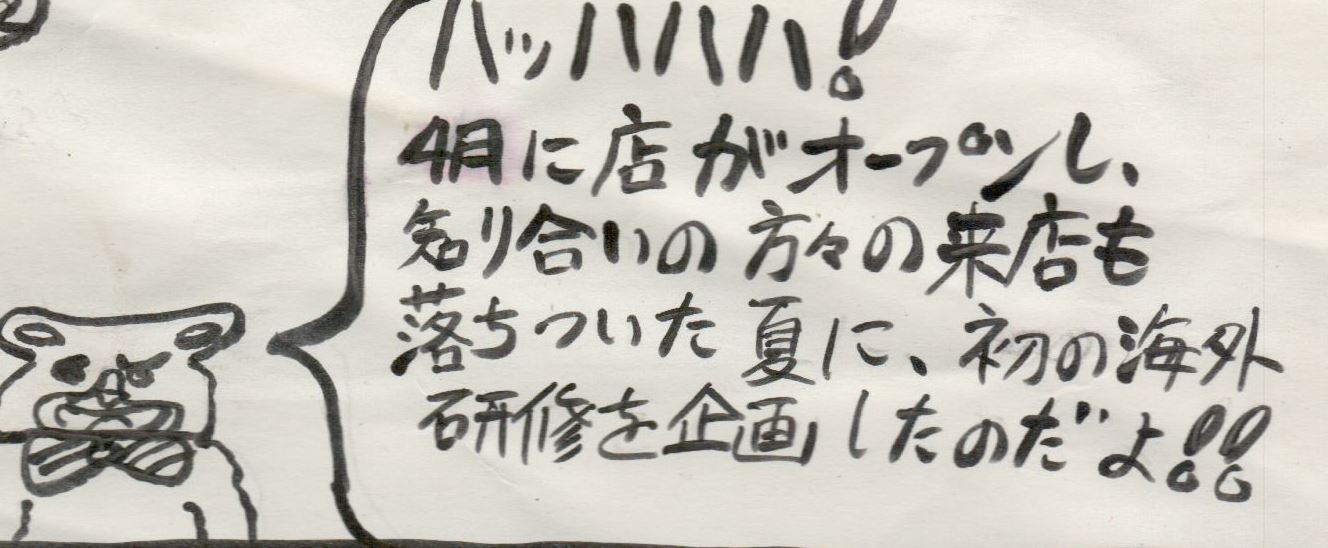 ハッハハハ!
4月に店がオープンし、
知り合いの方々の来店も
落ちついた夏に、初の海外
研修を企画したのだよ!!